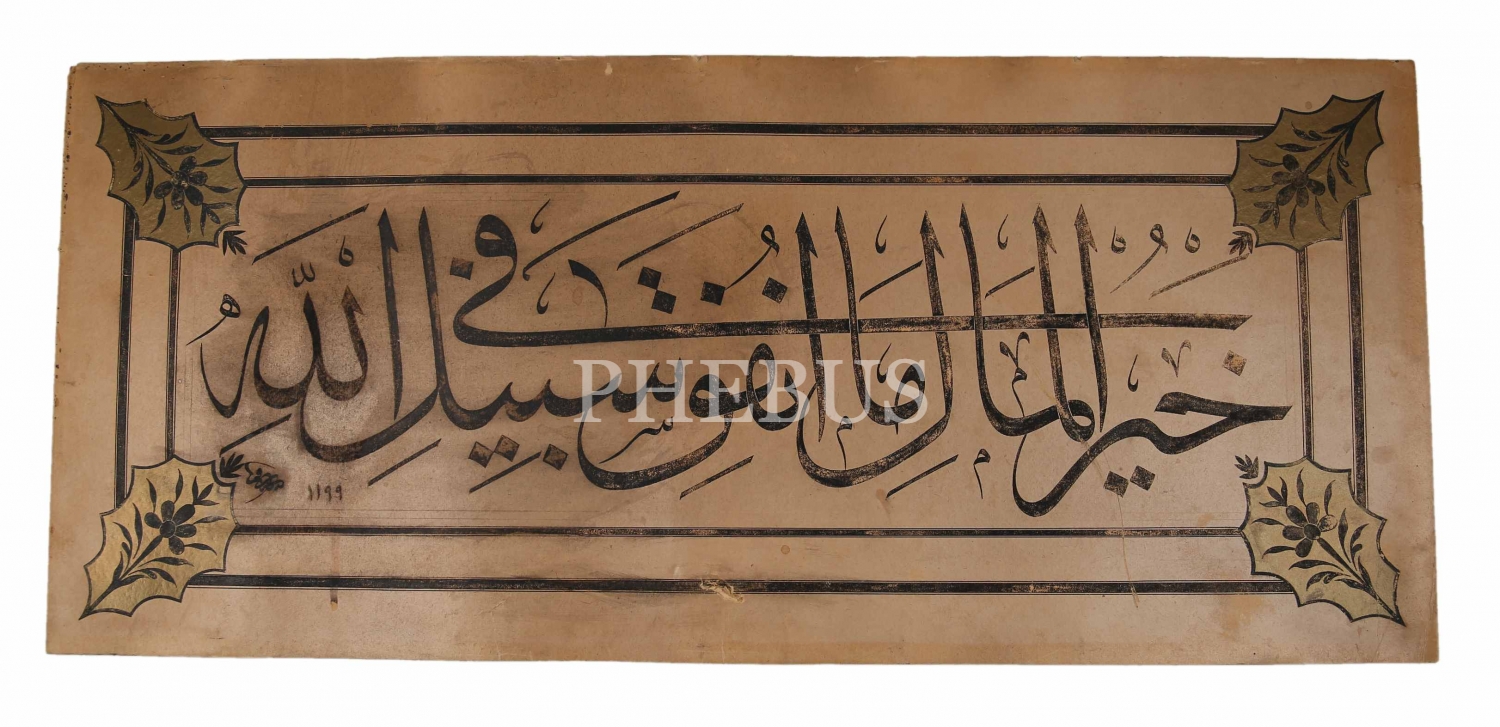 خَيْرُ الْمَالِ مَا أُنْفِقَ فِي سَبِيلِ اللّٰهِ
١١٩٩
PHEBUS